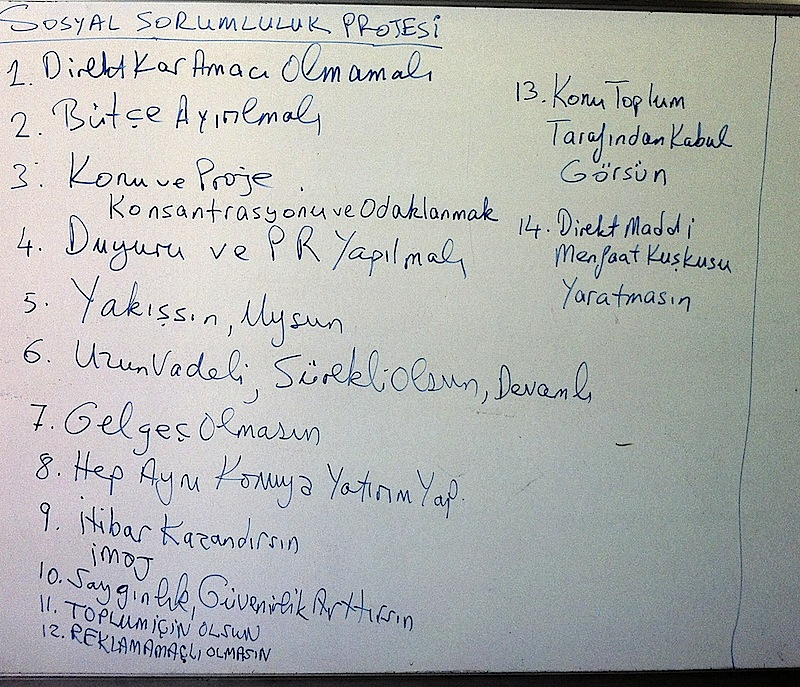 SOSYAL SORUMLULUK PROJESİ
1. Direkt Kar Amacı Olmamalı
2. Bütçe Ayırılmalı
3. Konu ve Proje
Konsantrasyonu ve Odaklanmak
4. Duyuru ve PR Yapılmalı
5. Yakışsın, Uysun
6. Uzun Vadeli, Sürekli Olsun, Devamlı
7. Gelgeç Olmasın
8. Hep Aynı Konuya Yatırım Yap.
9. İtibar Kazandırsın
İmaj
10. Saygınlık, Güvenirlik Arttırsın
11. TOPLUM İÇİN OLSUN
12. REKLAM AMAÇLI OLMASIN
13. Konu Toplum
Tarafından Kabul
Görsün
14. Direkt Maddi
Menfaat Kuşkusu
Yaratmasın